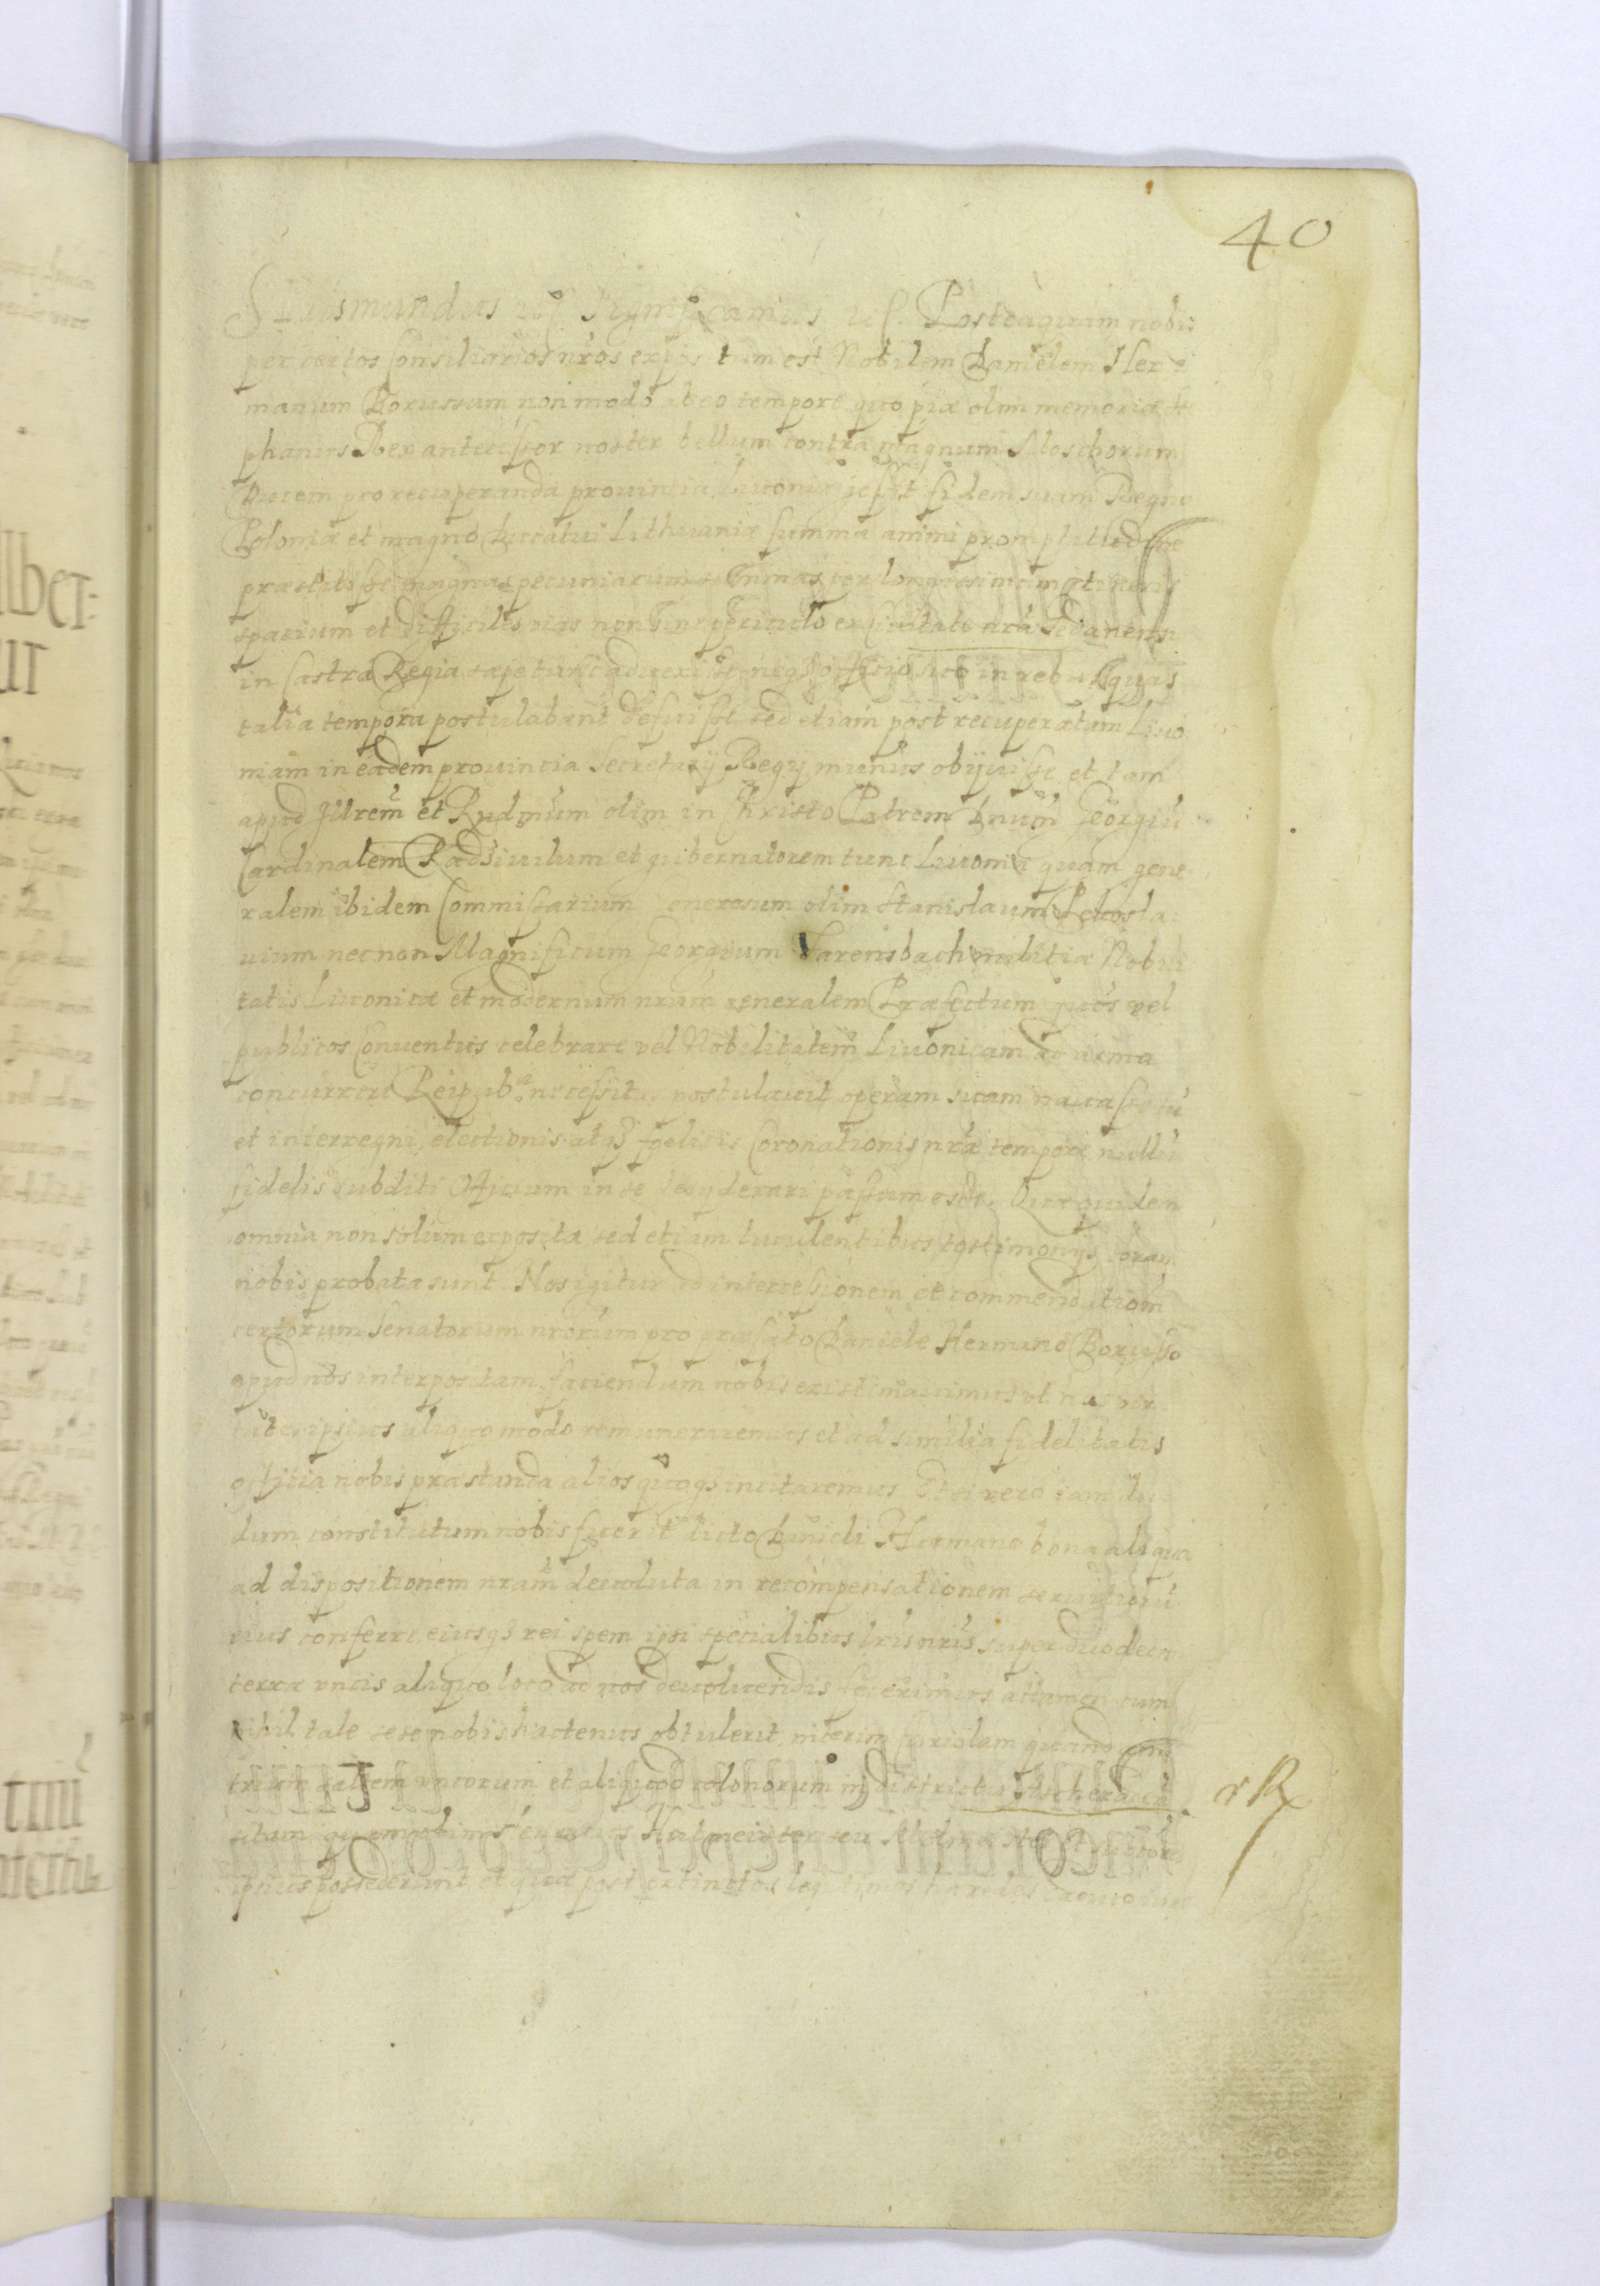 40
Sigismundus etc Significamus etc. Posteaquam nobis
per certos Consiliarios nros expositum est Nobilem Danielem Her
manum Borussum non modo ab eo tempore quo piæ olim memoriæ Ste
phanus Rex antecessor noster bellum contra magnum Moschorum
Ducem pro recuperanda prouincia Liuoniæ gessit fidem suam Regno
Poloniæ et magno Ducatui Lithuaniæ summa animi promptitudine
præstitisse magnas pecuniarum summas per longissimum itineris
spacium et difficiles vias non sine periculo ex Ciuitate nra Gedanensi
in Castra Regia sæpe tunc aduexisse neqȝ officio suo in rebus quas
talia tempora postulabant defuisse sed etiam post recuperatam Liuo
niam in eadem prouincia Secretarij Regij munus obijuisse et tam
apud Illrem et Rndmum olim in Christo Patrem Dnum Georgiu
Cardinalem Radziuilum et gubernatorem tunc Liuoniæ quam gene
ralem ibidem Commissarium Generosum olim Stanislaum Pekosla
uium necnon Magnificum Georgium Farensbach militiæ Nobili
tatis Liuonicæ et modernum nrum generalem Præfectum quos vel
publicos Conuentus celebrare vel Nobilitatem Liuonicam ad arma
concurrere Reipub necessitas postulauit operam suam nauasse tu
et interregni, electionis atqȝ fœlicis Coronationis nræ tempore nullu
fidelis subditi Officium in se desyderari passum esse. Quæ quidem
omnia non solum exposita sed etiam luculentibus testimonijs coram
nobis probata sunt. Nos igitur ad intercessionem et commendationem
certorum Senatorum nrorum pro præfato Daniele Hermano Borusso
apud nos interpositam, faciendum nobis existimauimus ut
ipsius aliquo modo remuneraremus et ad similia fidelitatis
officia nobis præstanda alios quoqȝ incitaremus Et si vero iam du
dum constitutum nobis fuerit dicto Danieli Hermano bona aliqua
ad dispositionem nram deuoluta in recompensationem seruitioru
eius conferre, eiusqȝ rei spem ipsi specialibus lris nris super duodecim
terræ vncis aliquo loco ad nos deuoluendis fecerimus attamen cum
nihil tale sese nobis hactenus obtulerit, interim
saltem vncorum et aliquod colonorum in districtu Ascheradensi
situm
ipsius possederunt et quæ post extinctos legitimos hæredes deuoluta